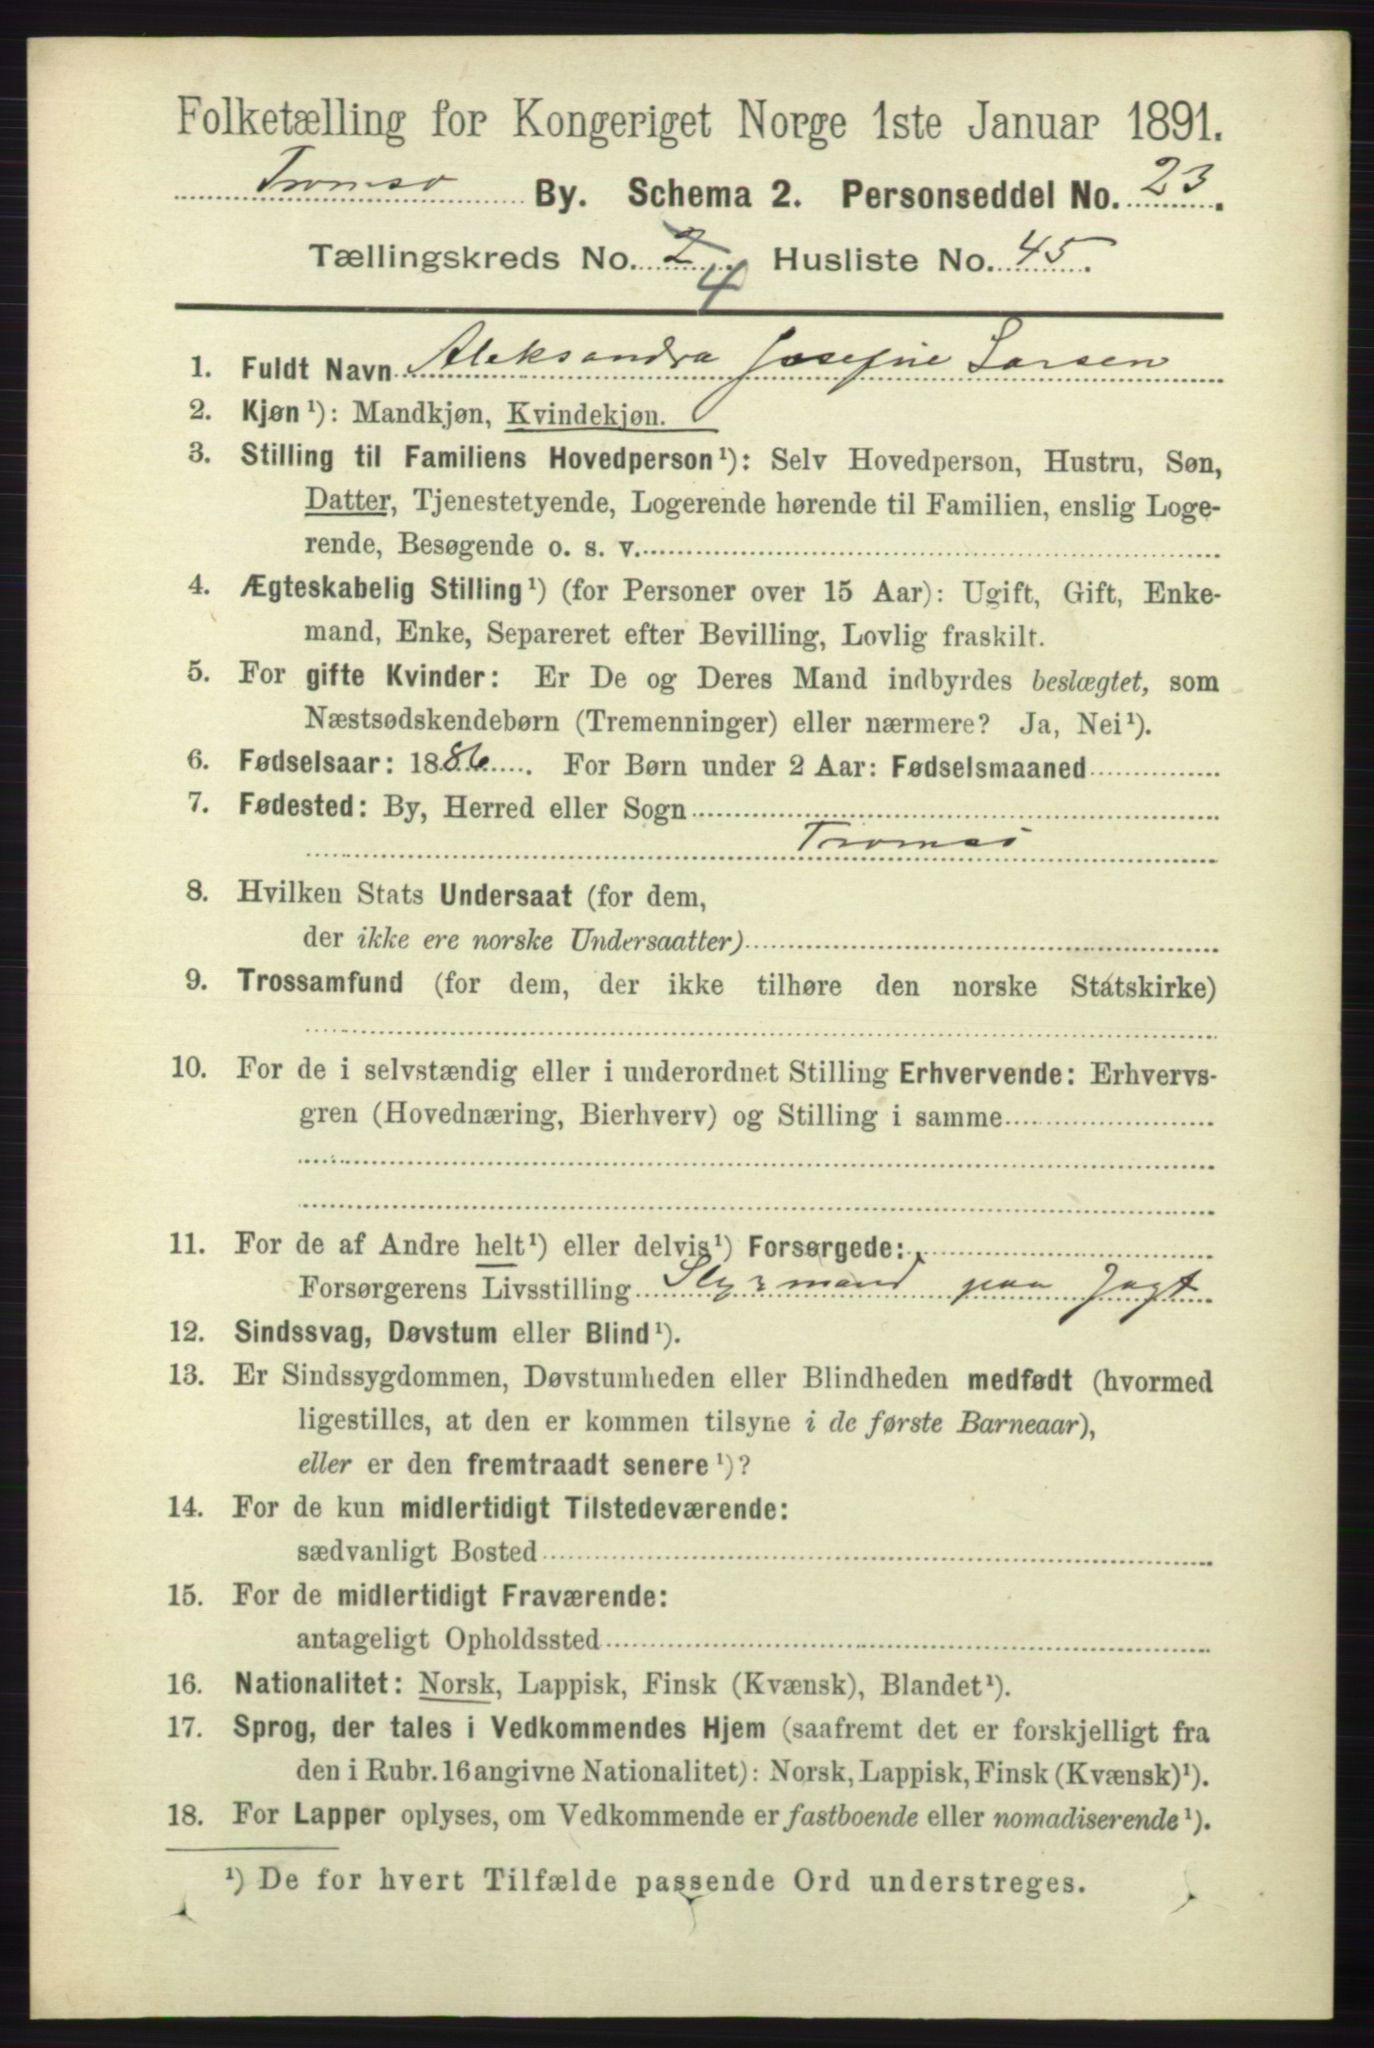 Folketælling for Kongeriget Norge 1ste Januar 1891.
Tromsø By. Schema 2. Personseddel No. 23.
Tællingskreds No. 2 4 Husliste No. 45.
1. Fuldt Navn Aleksandra Josefine Larsen
2. Kjøn¹): Mandkjøn, Kvindekjøn.
3. Stilling til Familiens Hovedperson¹): Selv Hovedperson, Hustru, Søn,
Datter, Tjenestetyende, Logerende hørende til Familien, enslig Loge-
rende, Besøgende o. s. v.
4. Ægteskabelig Stilling¹) (for Personer over 15 Aar): Ugift, Gift, Enke-
mand, Enke, Separeret efter Bevilling, Lovlig fraskilt.
5. For gifte Kvinder: Er De og Deres Mand indbyrdes beslægtet, som
Næstsødskendebørn (Tremenninger) eller nærmere? Ja, Nei¹).
6. Fødselsaar: 1886. For Børn under 2 Aar: Fødselsmaaned
7. Fødested: By, Herred eller Sogn
Tromsø
8. Hvilken Stats Undersaat (for dem,
der ikke ere norske Undersaatter)
9. Trossamfund (for dem, der ikke tilhøre den norske Statskirke)
10. For de i selvstændig eller i underordnet Stilling Erhvervende: Erhvervs-
gren (Hovednæring, Bierhverv) og Stilling i samme
11. For de af Andre helt¹) eller delvis¹) Forsørgede:
Forsørgerens Livsstilling Styrmand paa Jagt
12. Sindssvag, Døvstum eller Blind¹).
13. Er Sindssygdommen, Døvstumheden eller Blindheden medfødt (hvormed
ligestilles, at den er kommen tilsyne i de første Barneaar),
eller er den fremtraadt senere¹)?
14. For de kun midlertidigt Tilstedeværende:
sædvanligt Bosted
15. For de midlertidigt Fraværende:
antageligt Opholdssted
16. Nationalitet: Norsk, Lappisk, Finsk (Kvænsk), Blandet¹).
17. Sprog, der tales i Vedkommendes Hjem (saafremt det er forskjelligt fra
den i Rubr. 16 angivne Nationalitet): Norsk, Lappisk, Finsk (Kvænsk)¹).
18. For Lapper oplyses, om Vedkommende er fastboende eller nomadiserende¹).
¹) De for hvert Tilfælde passende Ord understreges.